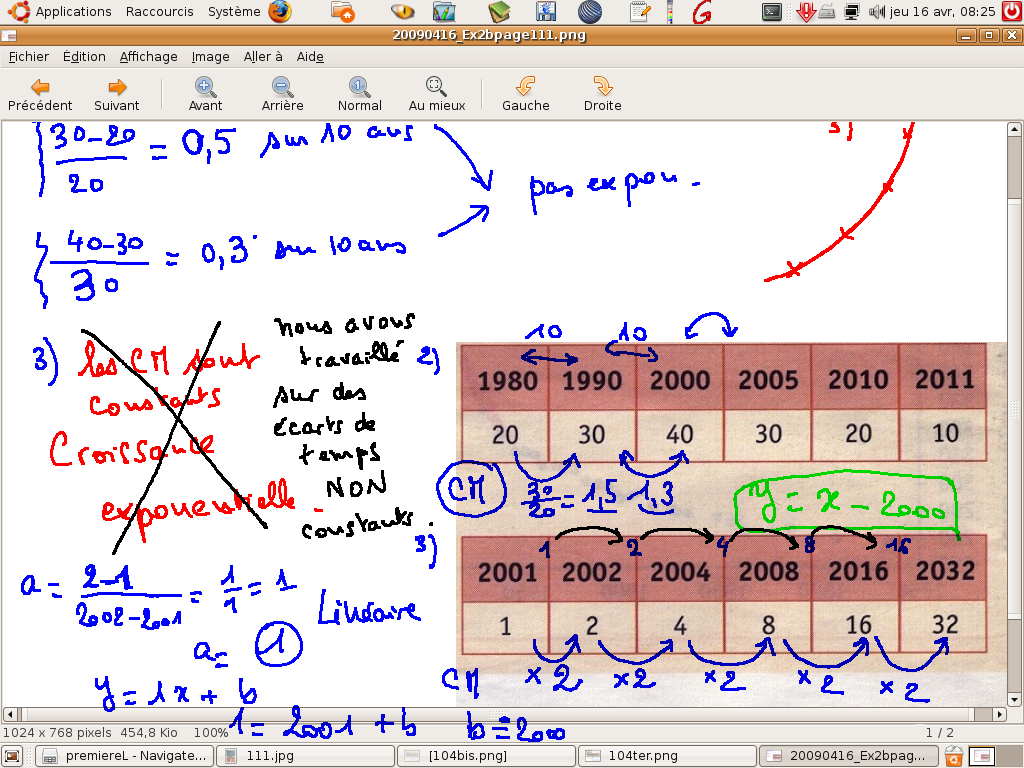 Applications Raccourcis Système jeu 16 avr, 08:25
20090416_Ex2bpage111.png
Fichier Édition Affichage Image Aller à Aide
Précédent Suivant Avant Arrière Normal Au mieux Gauche Droite
30-20 / 20 = 0,5 sur 10 ans
pas expon.
40-30 / 30 = 0,3 sur 10 ans
3)
3) les CM sont
constants
Croissance
exponentielle.
nous avons
travaillé
sur des
écarts de
temps
NON
constants.
2)
10 10
1980 1990 2000 2005 2010 2011
20 30 40 30 20 10
CM 30/20 = 1,5 1,3
y = x - 2000
3)
1 2 4 8 16
2001 2002 2004 2008 2016 2032
1 2 4 8 16 32
CM ×2 ×2 ×2 ×2 ×2
a = 2-1 / 2002-2001 = 1/1 = 1
Linéaire
a = 1
y = 1x + b
1 = 2001 + b b = -2000
1024 x 768 pixels 454,8 Kio 100% 1 / 2
premiereL - Navigate... 111.jpg [104bis.png] 104ter.png 20090416_Ex2bpag...